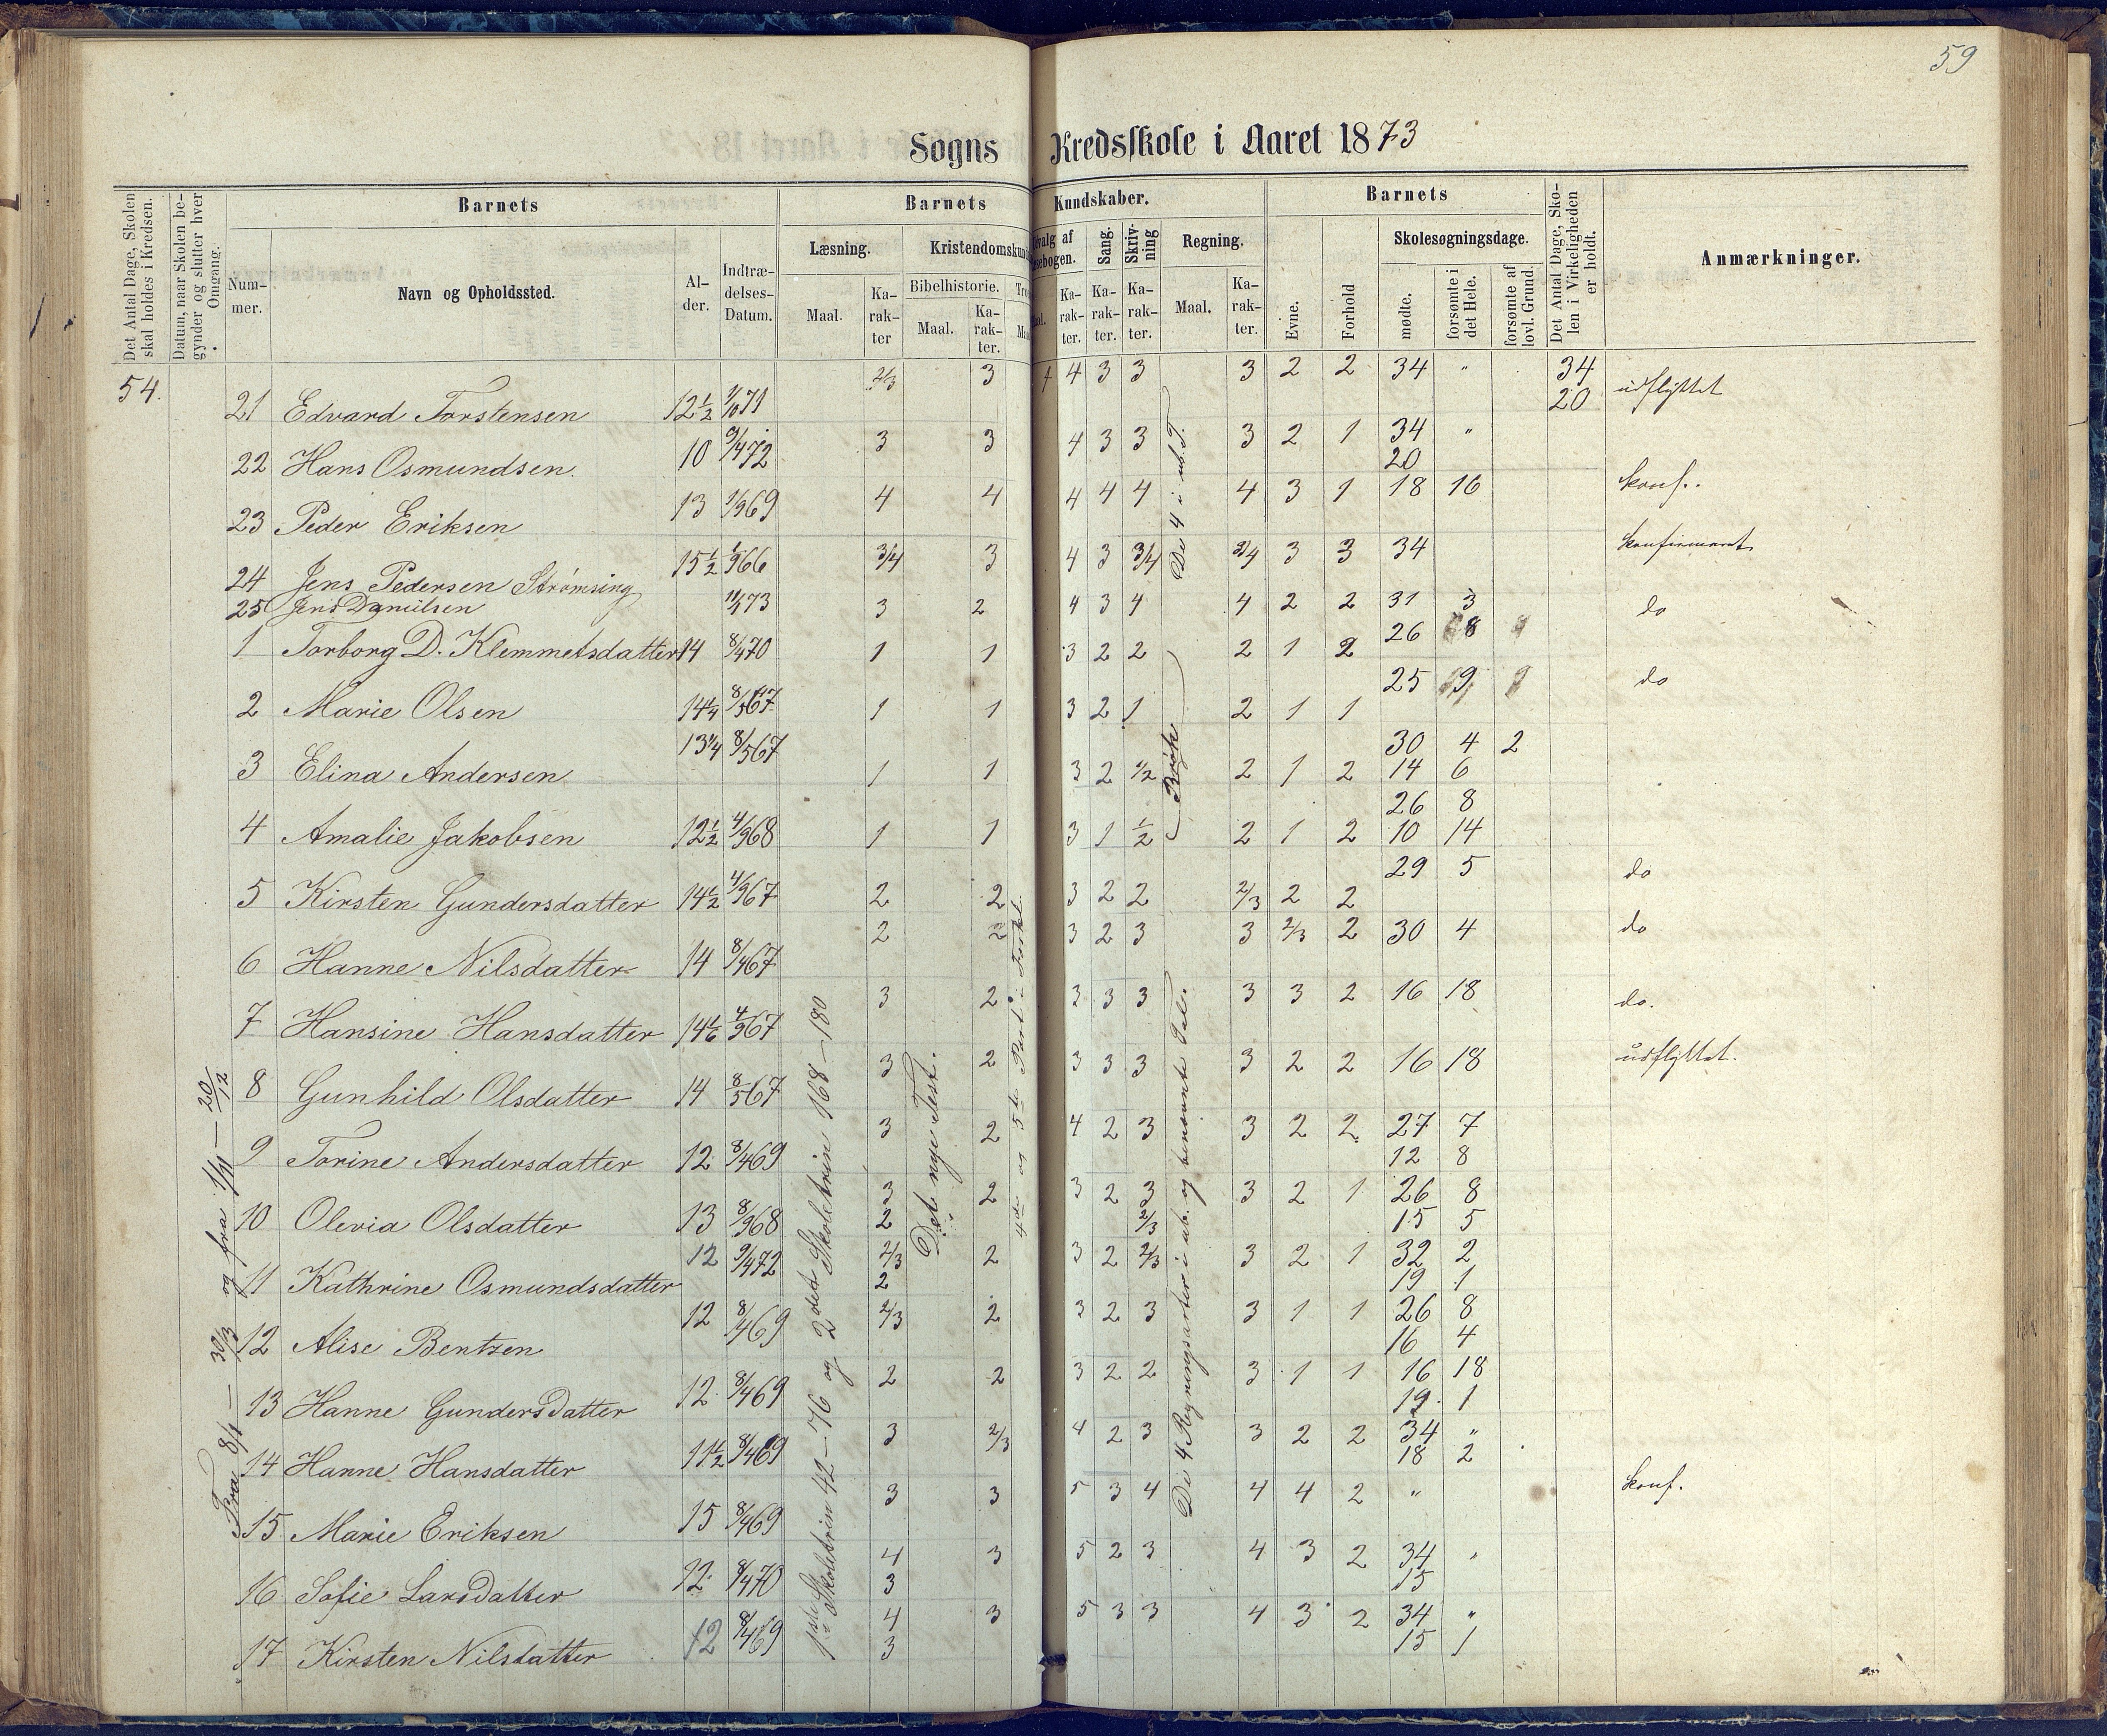 59
Sogns Kredsskole i Aaret 1873
Det Antal Dage, Skolen skal holdes i Kredsen.
Datum, naar Skolen begynder og slutter hver Omgang.
Barnets
Nummer.
Navn og Opholdssted.
Alder.
Indtrædelses-Datum.
Barnets Kundskaber.
Læsning.
Maal.
Karakter
Bibelhistorie.
Maal.
Karakter.
Sang.
Karakter.
Skrivning
Karakter.
Regning.
Maal.
Karakter.
Barnets
Evne.
Forhold
Skolesøgningsdage.
mødte.
forsømte i det Hele.
forsømte af lovl. Grund.
Det Antal Dage, Skolen i Virkeligheden er holdt.
Anmærkninger.
54.
Fra 8/1 — 30/3 og fra 1/11 — 20/12
1ste Skoletrin 42–76 og 2det Skoletrin 168–180
Det nye Test.
4de og 5te Part i Forkl.
De 4 i ub. T.
Brøk
De 4 Regningsarter i ub. og benævnte Tal.
21 Edvard Torstensen 12½ 1/10 71 2/3 3 4 3 3 3 2 2 34 " 34 udflyttet
20
22 Hans Osmundsen 10 9/4 72 3 3 4 3 3 3 2 1 34 "
20
23 Peder Eriksen 13 1/9 69 4 4 4 4 4 4 3 1 18 16 konf.
24 Jens Pedersen Strømsing 15½ 1/9 66 3/4 3 4 3 3/4 3/4 3 3 34 konfirmeret
25 Jens Danielsen 73 3 2 4 3 4 4 2 2 31 3 do
1 Torborg D. Klemmetsdatter 14 8/4 70 1 1 3 2 2 2 1 2 26 8
2 Marie Olsen 14¼ 8/5 67 1 1 3 2 1 2 1 1 25 9 do
3 Elina Andersen 13¼ 8/5 67 1 1 3 2 1/2 2 1 2 30 4 2
14 6
4 Amalie Jakobsen 12½ 4/9 68 1 1 3 1 1/2 2 1 2 26 8
10 14
5 Kirsten Gundersdatter 14½ 4/9 67 2 2 3 2 2 2/3 2 2 29 5 do
6 Hanne Nilsdatter 14 8/4 67 2 2 3 2 3 3 2/3 2 30 4 do
7 Hansine Hansdatter 14 1/6 4/9 67 3 2 3 3 3 3 3 2 16 18 do.
8 Gunhild Olsdatter 14 8/5 67 3 2 3 3 3 3 2 2 16 18 udflyttet.
9 Torine Andersdatter 12 8/4 69 3 2 4 2 3 3 2 2 27 7
12 8
10 Olevia Olsdatter 13 8/9 68 3 2 3 2 3 3 2 1 26 8
2 2/3 15 5
11 Kathrine Osmundsdatter 12 9/4 72 2/3 2 3 2 2/3 3 2 1 32 2
2 19 1
12 Alise Bentzen 12 8/4 69 2/3 2 3 2 3 3 1 1 26 8
16 4
13 Hanne Gundersdatter 12 8/4 69 2 2 3 2 2 3 1 1 16 18
19 1
14 Hanne Hansdatter 11½ 8/4 69 3 2/3 4 2 3 3 2 2 34 "
18 2
15 Marie Eriksen 15 8/4 69 3 3 5 3 4 4 4 2 " konf.
16 Sofie Larsdatter 12 8/4 70 4 3 5 2 3 4 3 2 34 "
3 15
17 Kirsten Nilsdatter 12 8/4 69 4 3 5 3 3 4 3 2 34 "
3 15 1